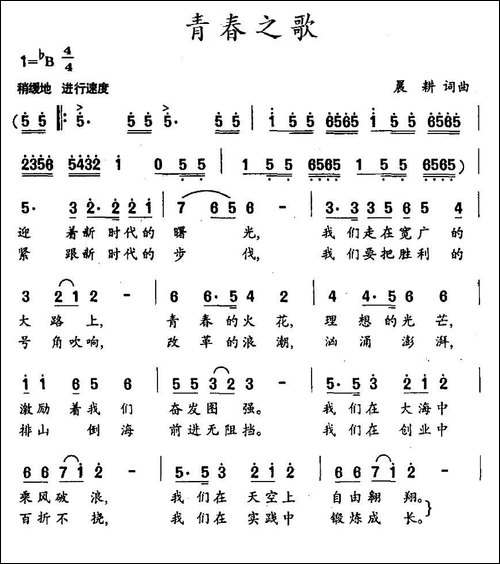 青春之歌
1=♭B 4/4
稍缓地 进行速度
晨 耕 词曲
(5 5 |: 5· 5 5 5 5 5· | 1 5 5 6565 | 1 5 5 6565 |
2356 5432 1 | 0 5 5 | 1 5 5 6565 | 1 5 5 6565)
5· 3 2· 2 2 1 | 7 6 5 6 - | 3· 3 3 3 5 6 5 4
迎 着新时代的 曙 光, 我们走在宽广的
紧 跟新时代的 步 伐, 我们要把胜利的
3 2 1 2 - | 6 6· 5 4 2 | 4 4· 5 6 -
大 路 上, 青 春的火花, 理 想的光芒,
号 角吹响, 改 革的浪潮, 汹 涌澎湃,
1 1 6 5 6 | 5 5 5 3 2 3 - | 5· 5 3 2 1 2
激励 着我 们 奋发图 强。 我们在 大海中
排山 倒海 前进无阻挡。 我们在 创业中
6 6 7 1 2 - | 5· 5 3 2 1 2 | 6 6 7 1 2 -
乘风破 浪, 我们在天空上 自由翱 翔。
百折不 挠, 我们在 实践中 锻炼成 长。